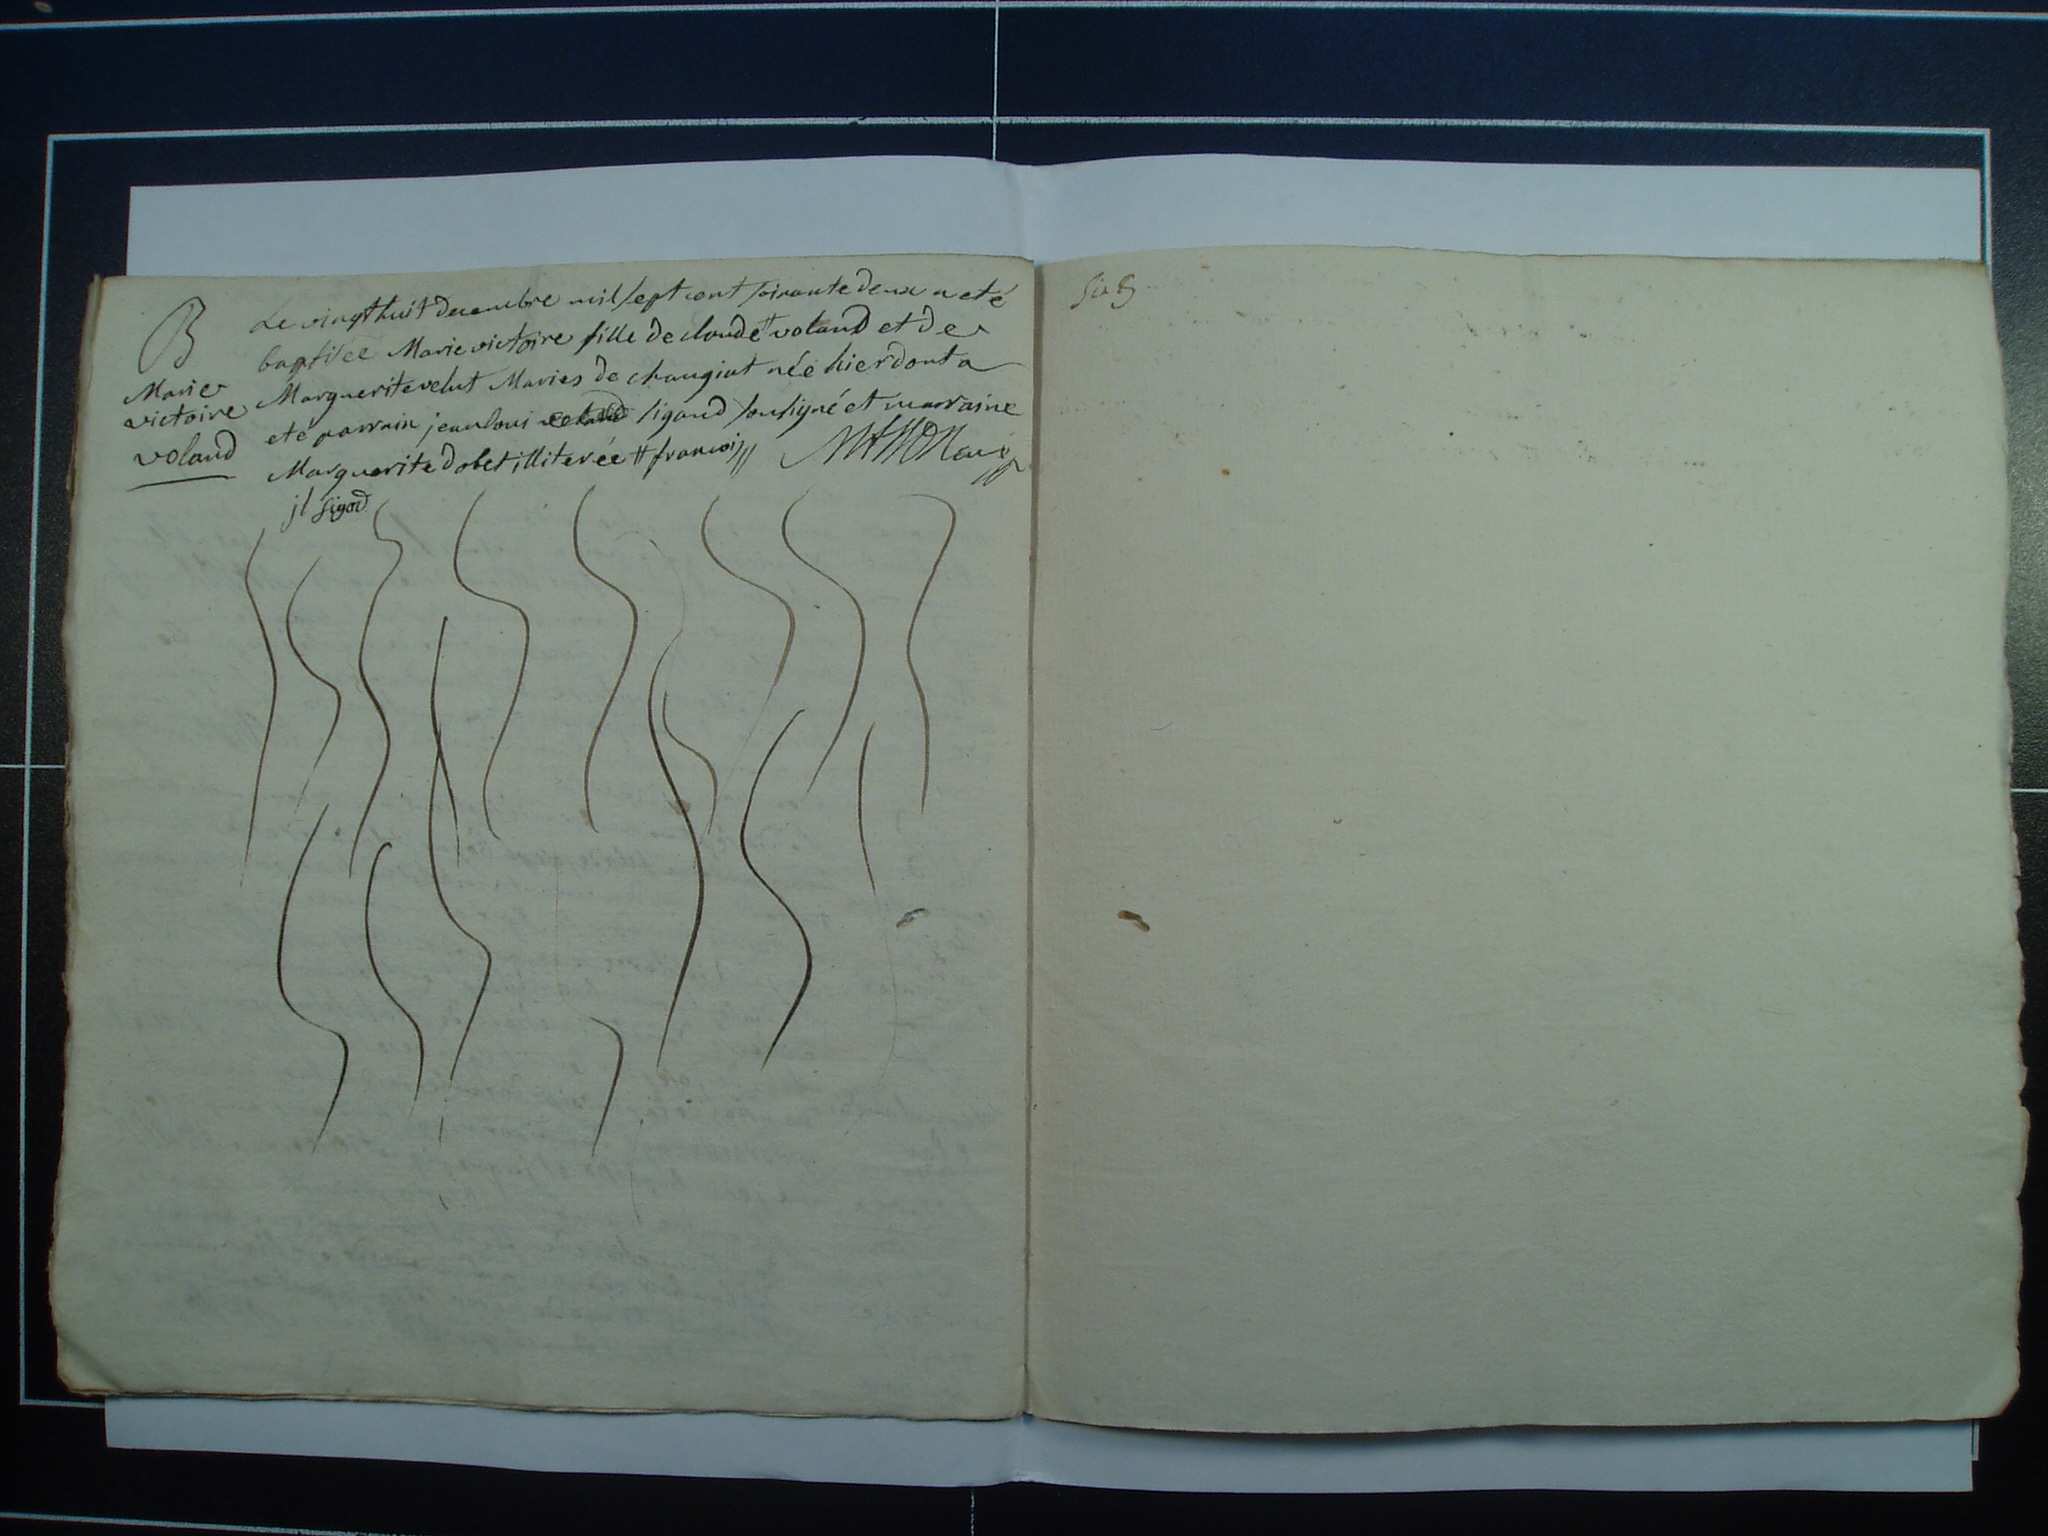 B
Marie
victoire
voland
Le vingthuit decembre mil sept cent soixante deux a eté
baptisée Marie victoire fille de claude # voland et de
Marguerite velut Maries de changiat née hier dont a
eté parrain jean loui sigaud soussigné et marraine
Marguerite dobet illiterée # francois //
jl sigod
six